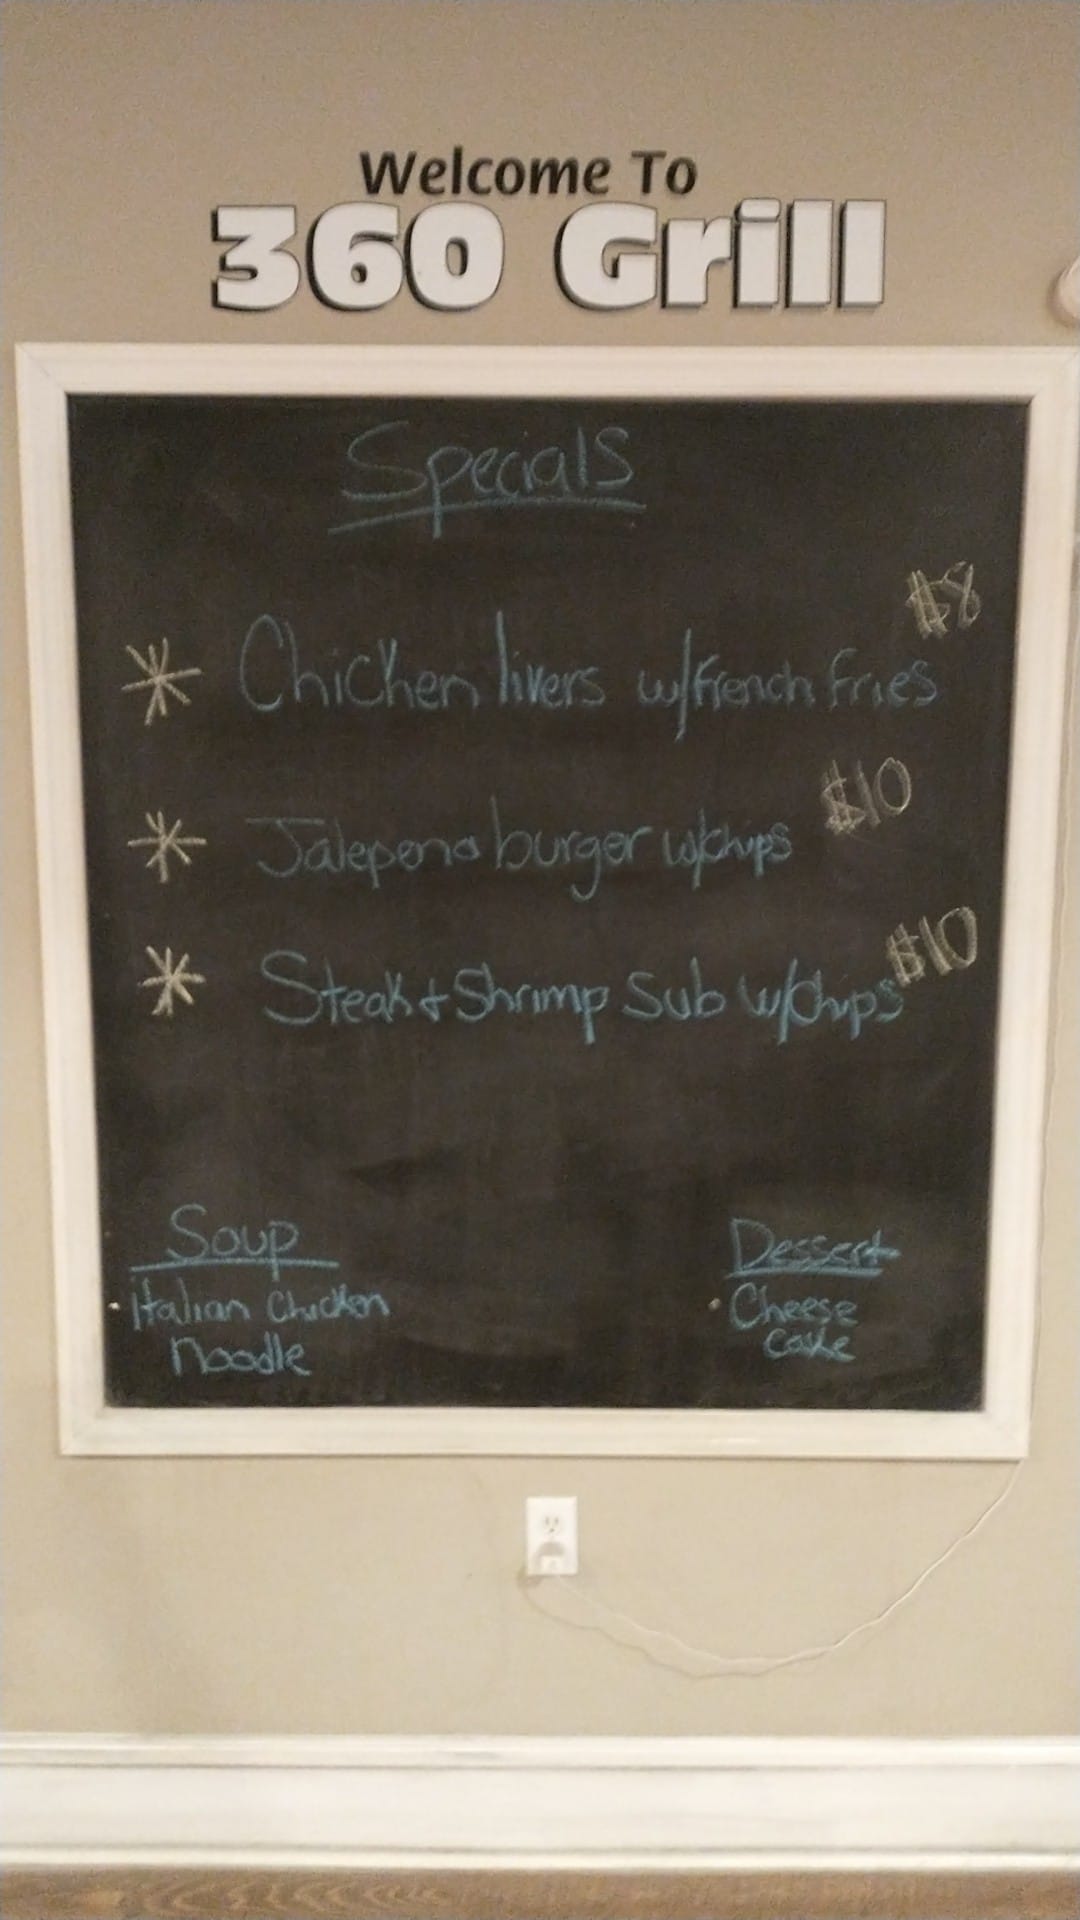 Welcome To
360 Grill
Specials
$8
* Chicken livers w/french fries
$10
* Jalepeno burger w/chips
$10
* Steak + Shrimp Sub w/chips
Soup
Italian Chicken
Noodle
Dessert
Cheese
cake